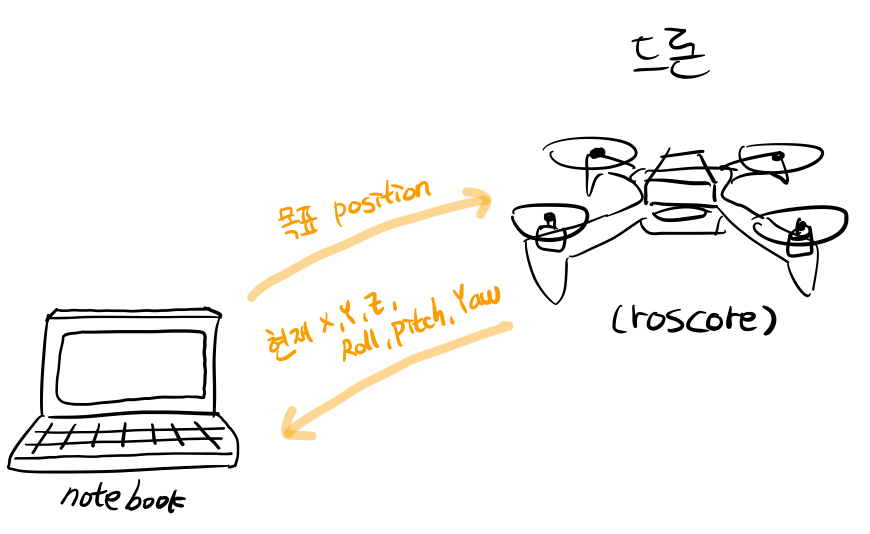 드론
목표 position
현재 X, Y, Z,
Roll, pitch, Yaw
(roscore)
notebook